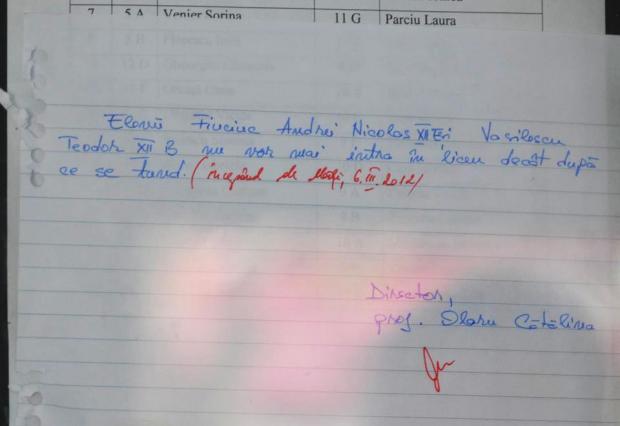 7 5 A Venier Sorina 11 G Parciu Laura
Elevii Fiuciuc Andrei Nicolas XII E și Vasilescu
Teodor XII B nu vor mai intra în liceu decât după
ce se tund. (începând de Marți, 6.III.2012)
Director,
prof. Olaru Cătălina